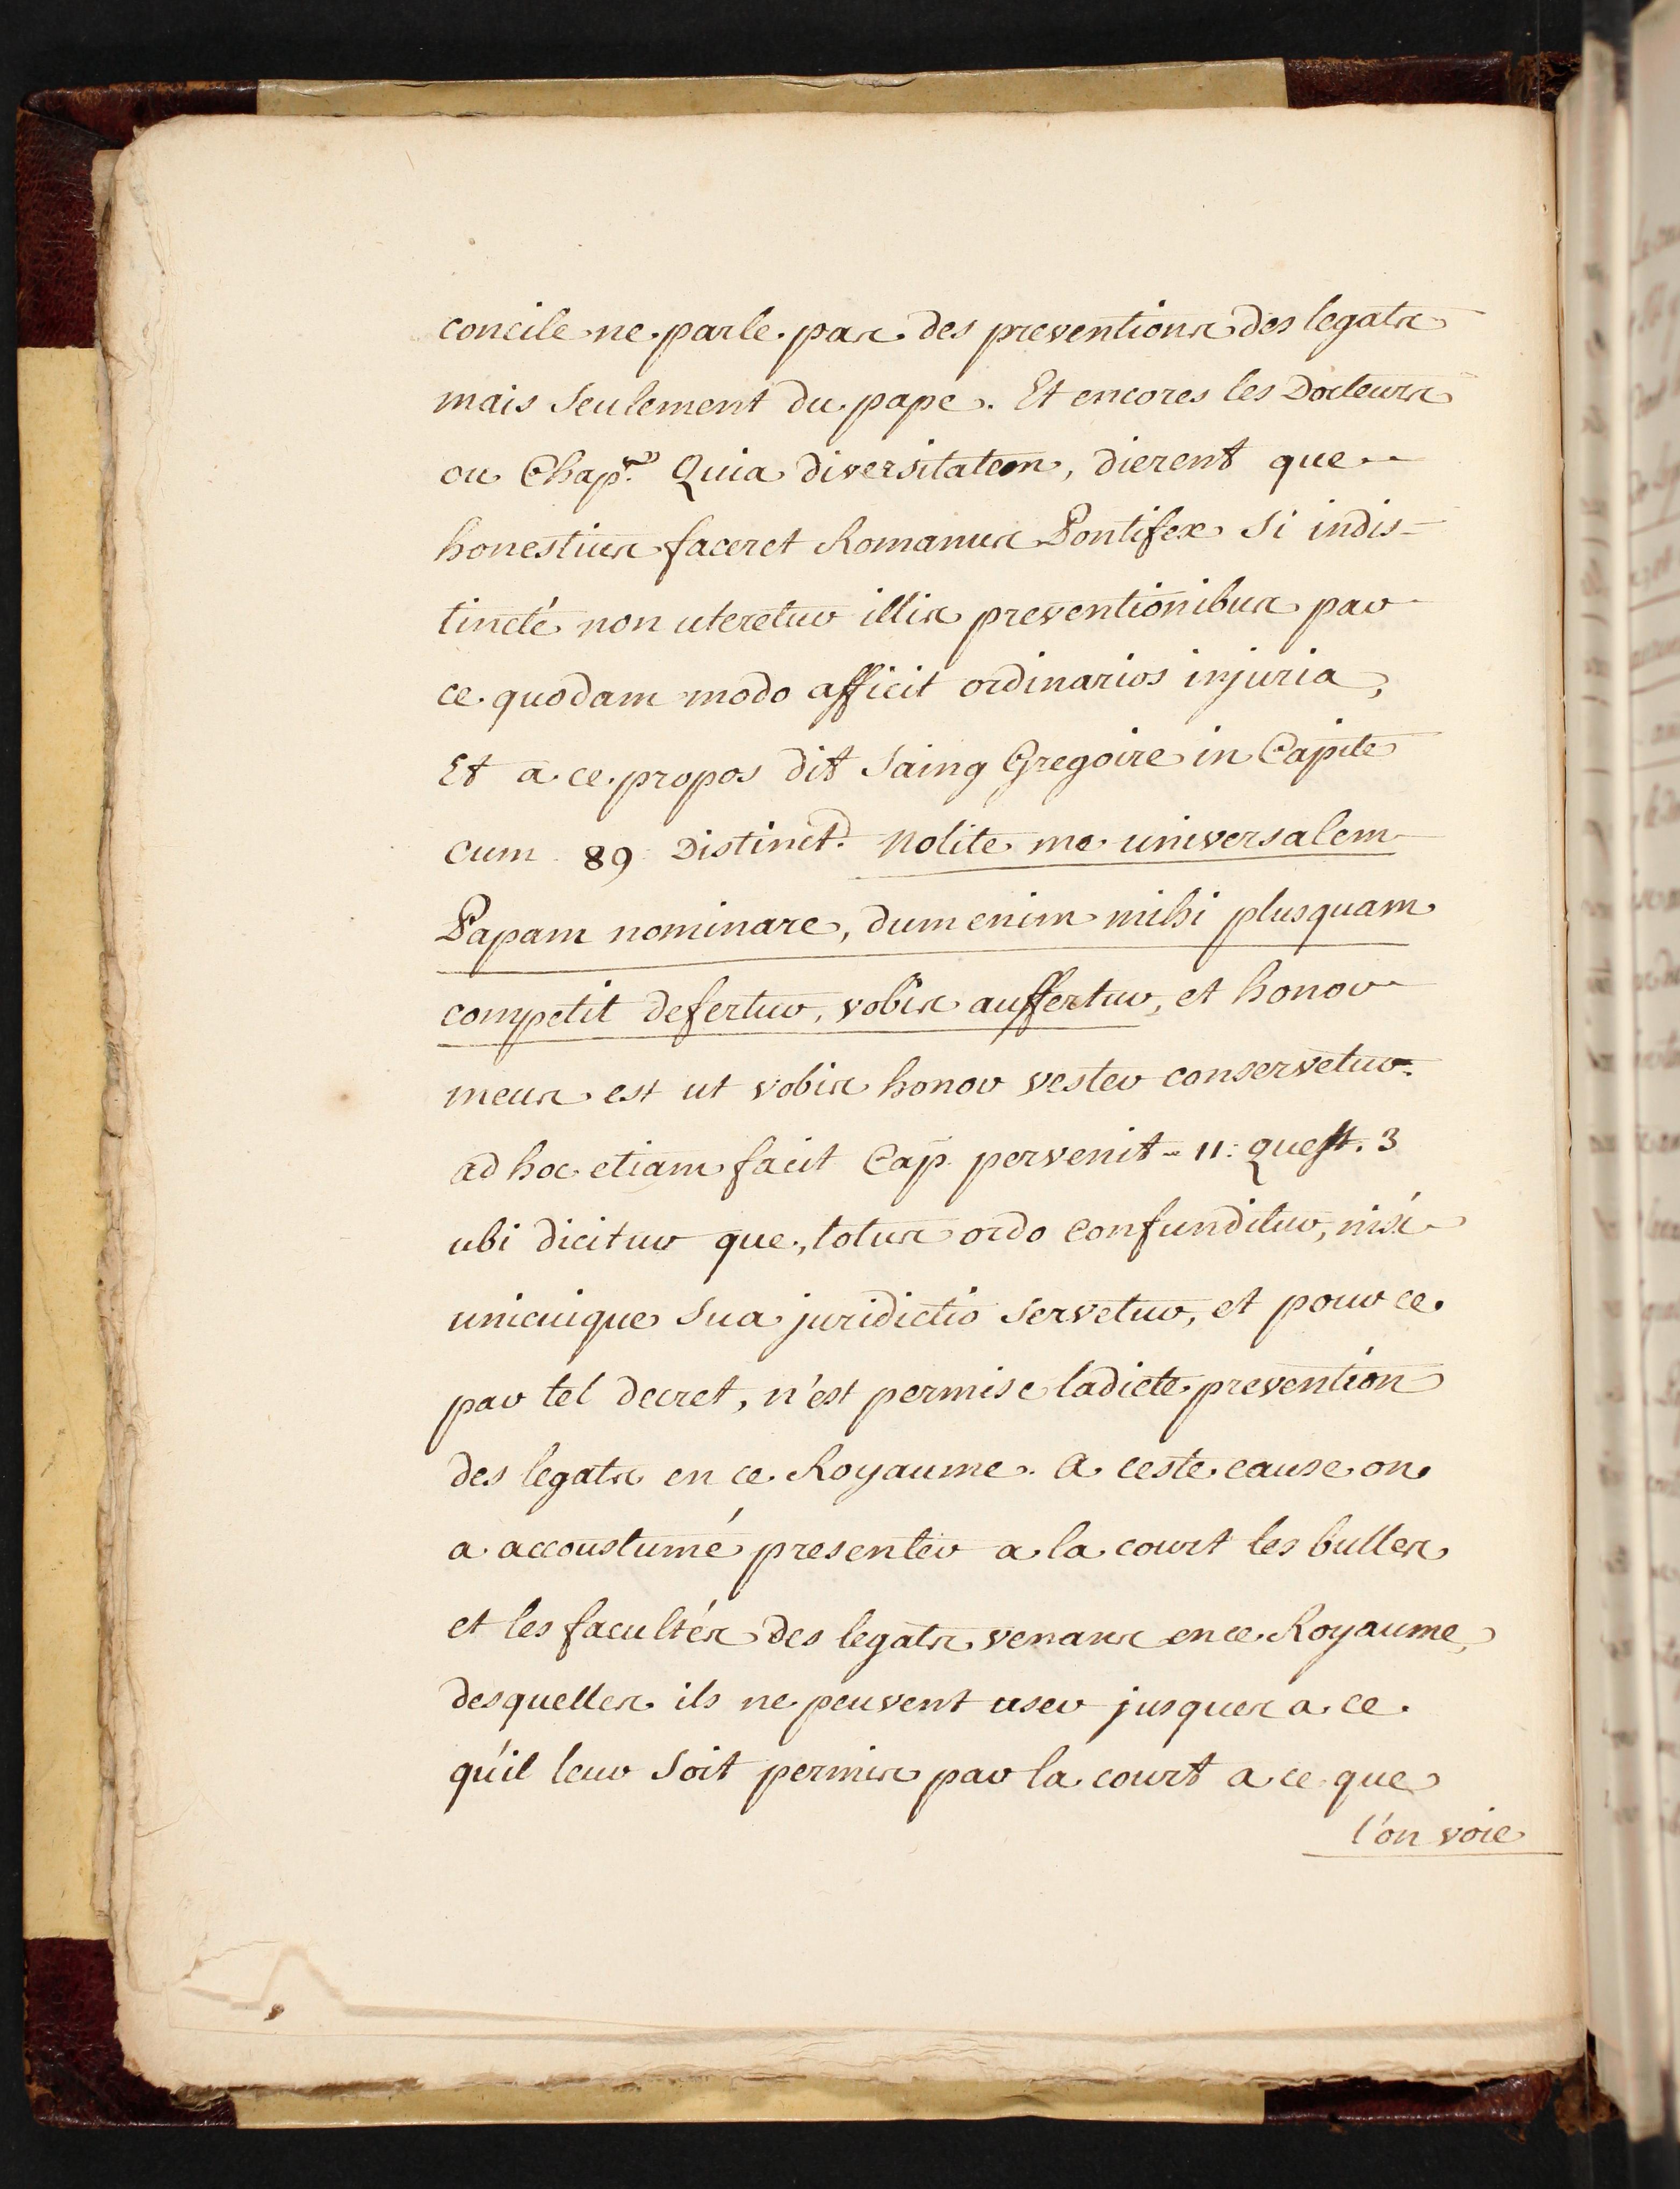 concile ne parle pas des preventions des legats
mais seulement du pape. Et encores les Docteurs
ou Chap.re Quia diversitatem, dierent que
honestius faceret Romanus Pontifex si indis-
tincté non uteretur illis preventionibus par
ce quodam modo afficit ordinarios injuria,
Et a ce propos dit Saing Gregoire in Capite
cum 89 Distinct. Nolite me universalem
Papam nominare, dum enim mihi plusquam
competit defertur, vobis auffertur, et honor
meus est ut vobis honor vester conservetur.
ad hoc etiam facit Cap. pervenit - 11: quest. 3
ubi dicitur que, totus ordo confunditur, nisi
unicuique sua juridictio servetur, et pour ce
par tel decret, n'est permise ladicte prevention
des legats en ce Royaume. A ceste cause on
a accoustumé presenter a la court les bulles
et les facultés des legats venans en ce Royaume,
desquelles ils ne peuvent user jusques a ce
qu'il leur soit permis par la court a ce que
l'on voie